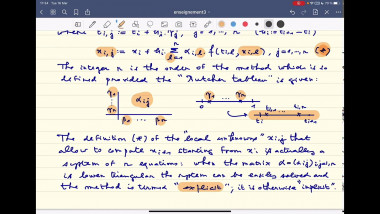 17:44 Tue 16 Mar
enseignement3
where t_{i,j} := t_i + h_i γ_j, j=0,..,n (h_i := t_{i+1} - t_i)
x_{i,j} := x_i + h_i Σ_{l=0}^{n} α_{j,l} f(t_{i,l}, x_{i,l}), j=0,..,n (*)
The integer n is the order of the method which is so
defined provided the "Butcher tableau" is given:
α_{ij}
0 1
t_i t_{i+1}
β_0 ... β_n
The definition (*) of the "local unknowns" x_{i,j} that
allow to compute x_{i+1} starting from x_i is actually a
system of n equations: when the matrix α=(α_{ij})_{i,j=0,..,n}
is lower triangular the system can be easily solved and
the method is termed "explicit"; it is otherwise "implicit".